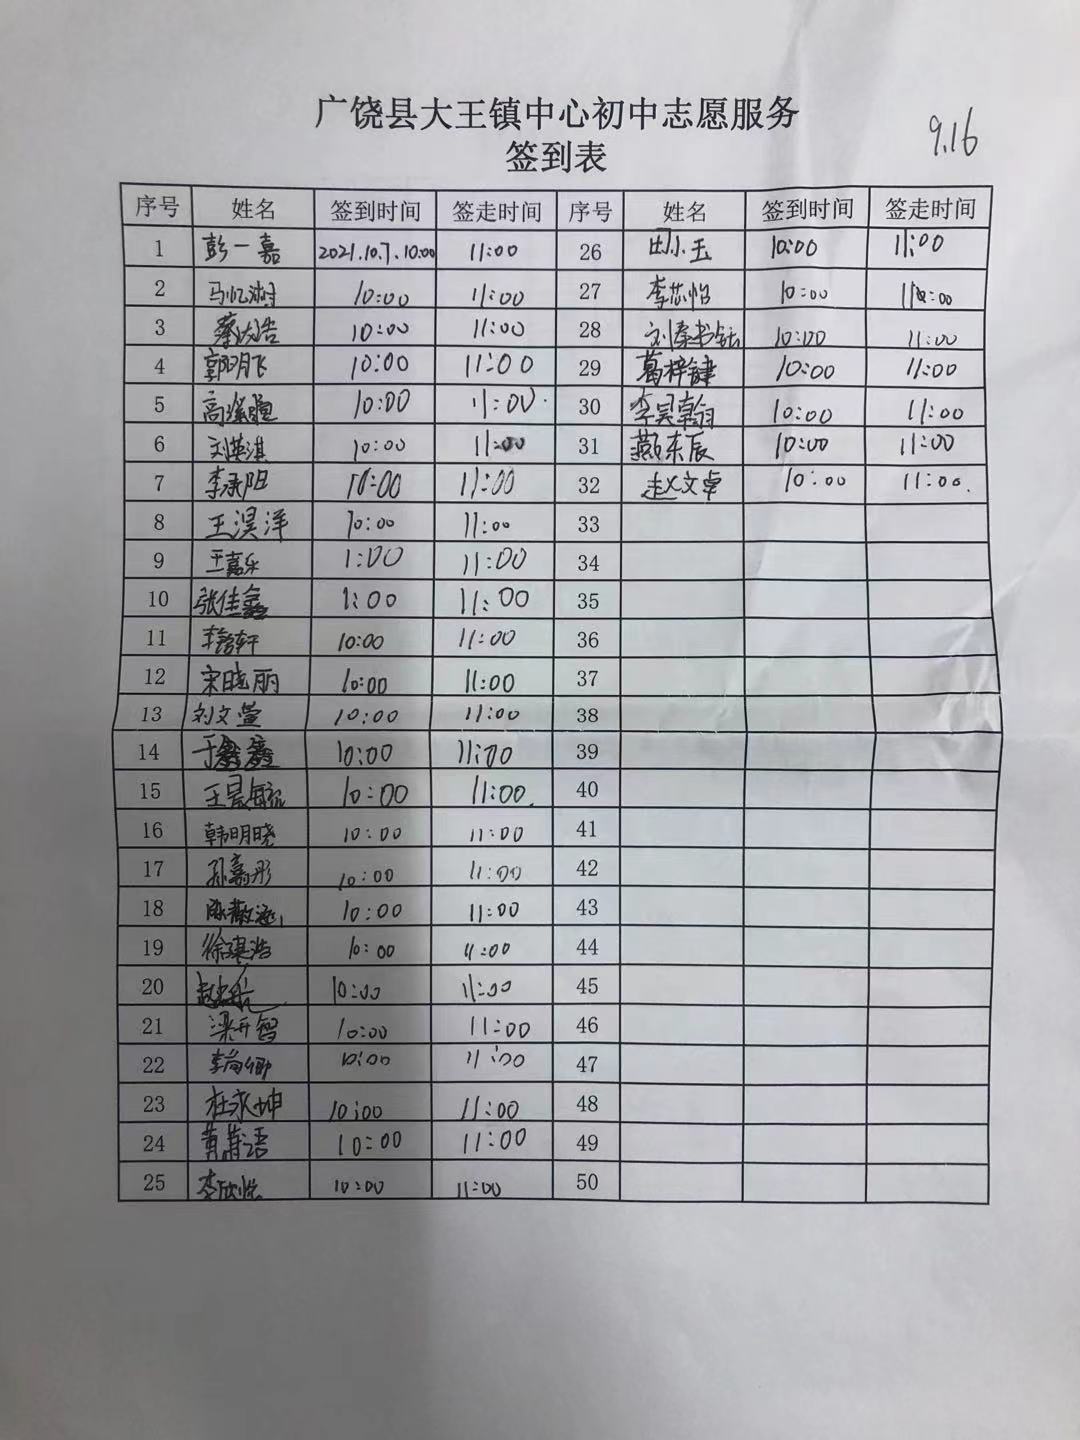 广饶县大王镇中心初中志愿服务
签到表
9.16
序号 姓名 签到时间 签走时间 序号 姓名 签到时间 签走时间
1 彭一嘉 2021.10.7.10:00 11:00 26 田小玉 10:00 11:00
2 马忆 10:00 11:00 27 李芯怡 10:00 11:00
3 蔡 浩 10:00 11:00 28 刘秦书 10:00 11:00
4 郭明飞 10:00 11:00 29 葛梓健 10:00 11:00
5 高 10:00 11:00 30 李昊翰 10:00 11:00
6 刘英淇 10:00 11:00 31 燕东辰 10:00 11:00
7 李录阳 10:00 11:00 32 赵文卓 10:00 11:00.
8 王淏洋 10:00 11:00 33
9 王嘉乐 1:00 11:00 34
10 张佳鑫 1:00 11:00 35
11 李 轩 10:00 11:00 36
12 宋晓丽 10:00 11:00 37
13 刘文萱 10:00 11:00 38
14 于 鑫 10:00 11:00 39
15 王 10:00 11:00. 40
16 韩明晓 10:00 11:00 41
17 孙嘉彤 10:00 11:00 42
18 10:00 11:00 43
19 徐 浩 10:00 11:00 44
20 赵 航 10:00 11:00 45
21 梁开智 10:00 11:00 46
22 李尚卿 10:00 11:00 47
23 杜永坤 10:00 11:00 48
24 黄 语 10:00 11:00 49
25 李欣悦 10:00 11:00 50